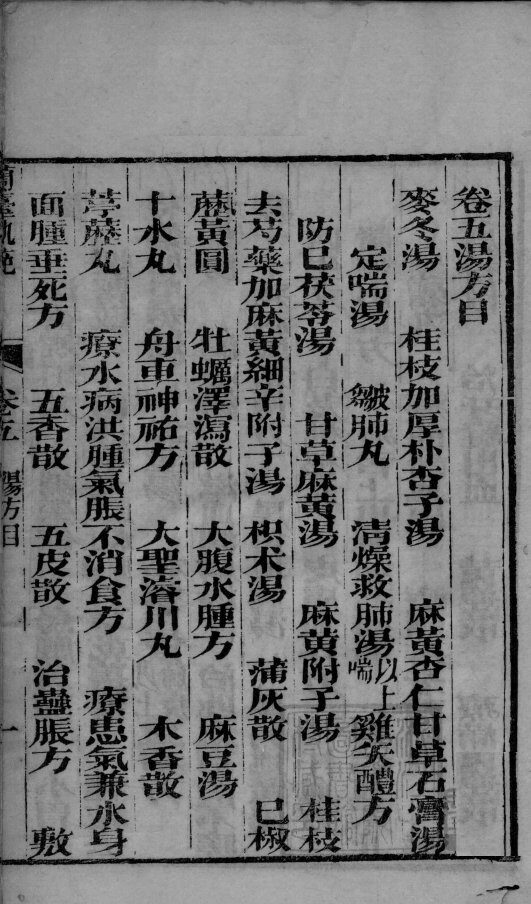 卷五湯方目
麥冬湯 桂枝加厚朴杏子湯 麻黃杏仁甘草石膏湯
定喘湯 皺肺丸 清燥救肺湯以上喘 雞矢醴方
防已茯苓湯 甘草麻黃湯 麻黃附子湯 桂枝
去芍藥加麻黃細辛附子湯 枳朮湯 蒲灰散 已椒
藶黃圓 牡蠣澤瀉散 大腹水腫方 麻豆湯
十水丸 舟車神祐方 大聖濬川丸 木香散
葶藶丸 療水病洪腫氣脹不消食方 療患氣兼水身
面腫垂死方 五香散 五皮散 治蠱脹方 敷
蘭臺軌範 卷五 湯方目 一